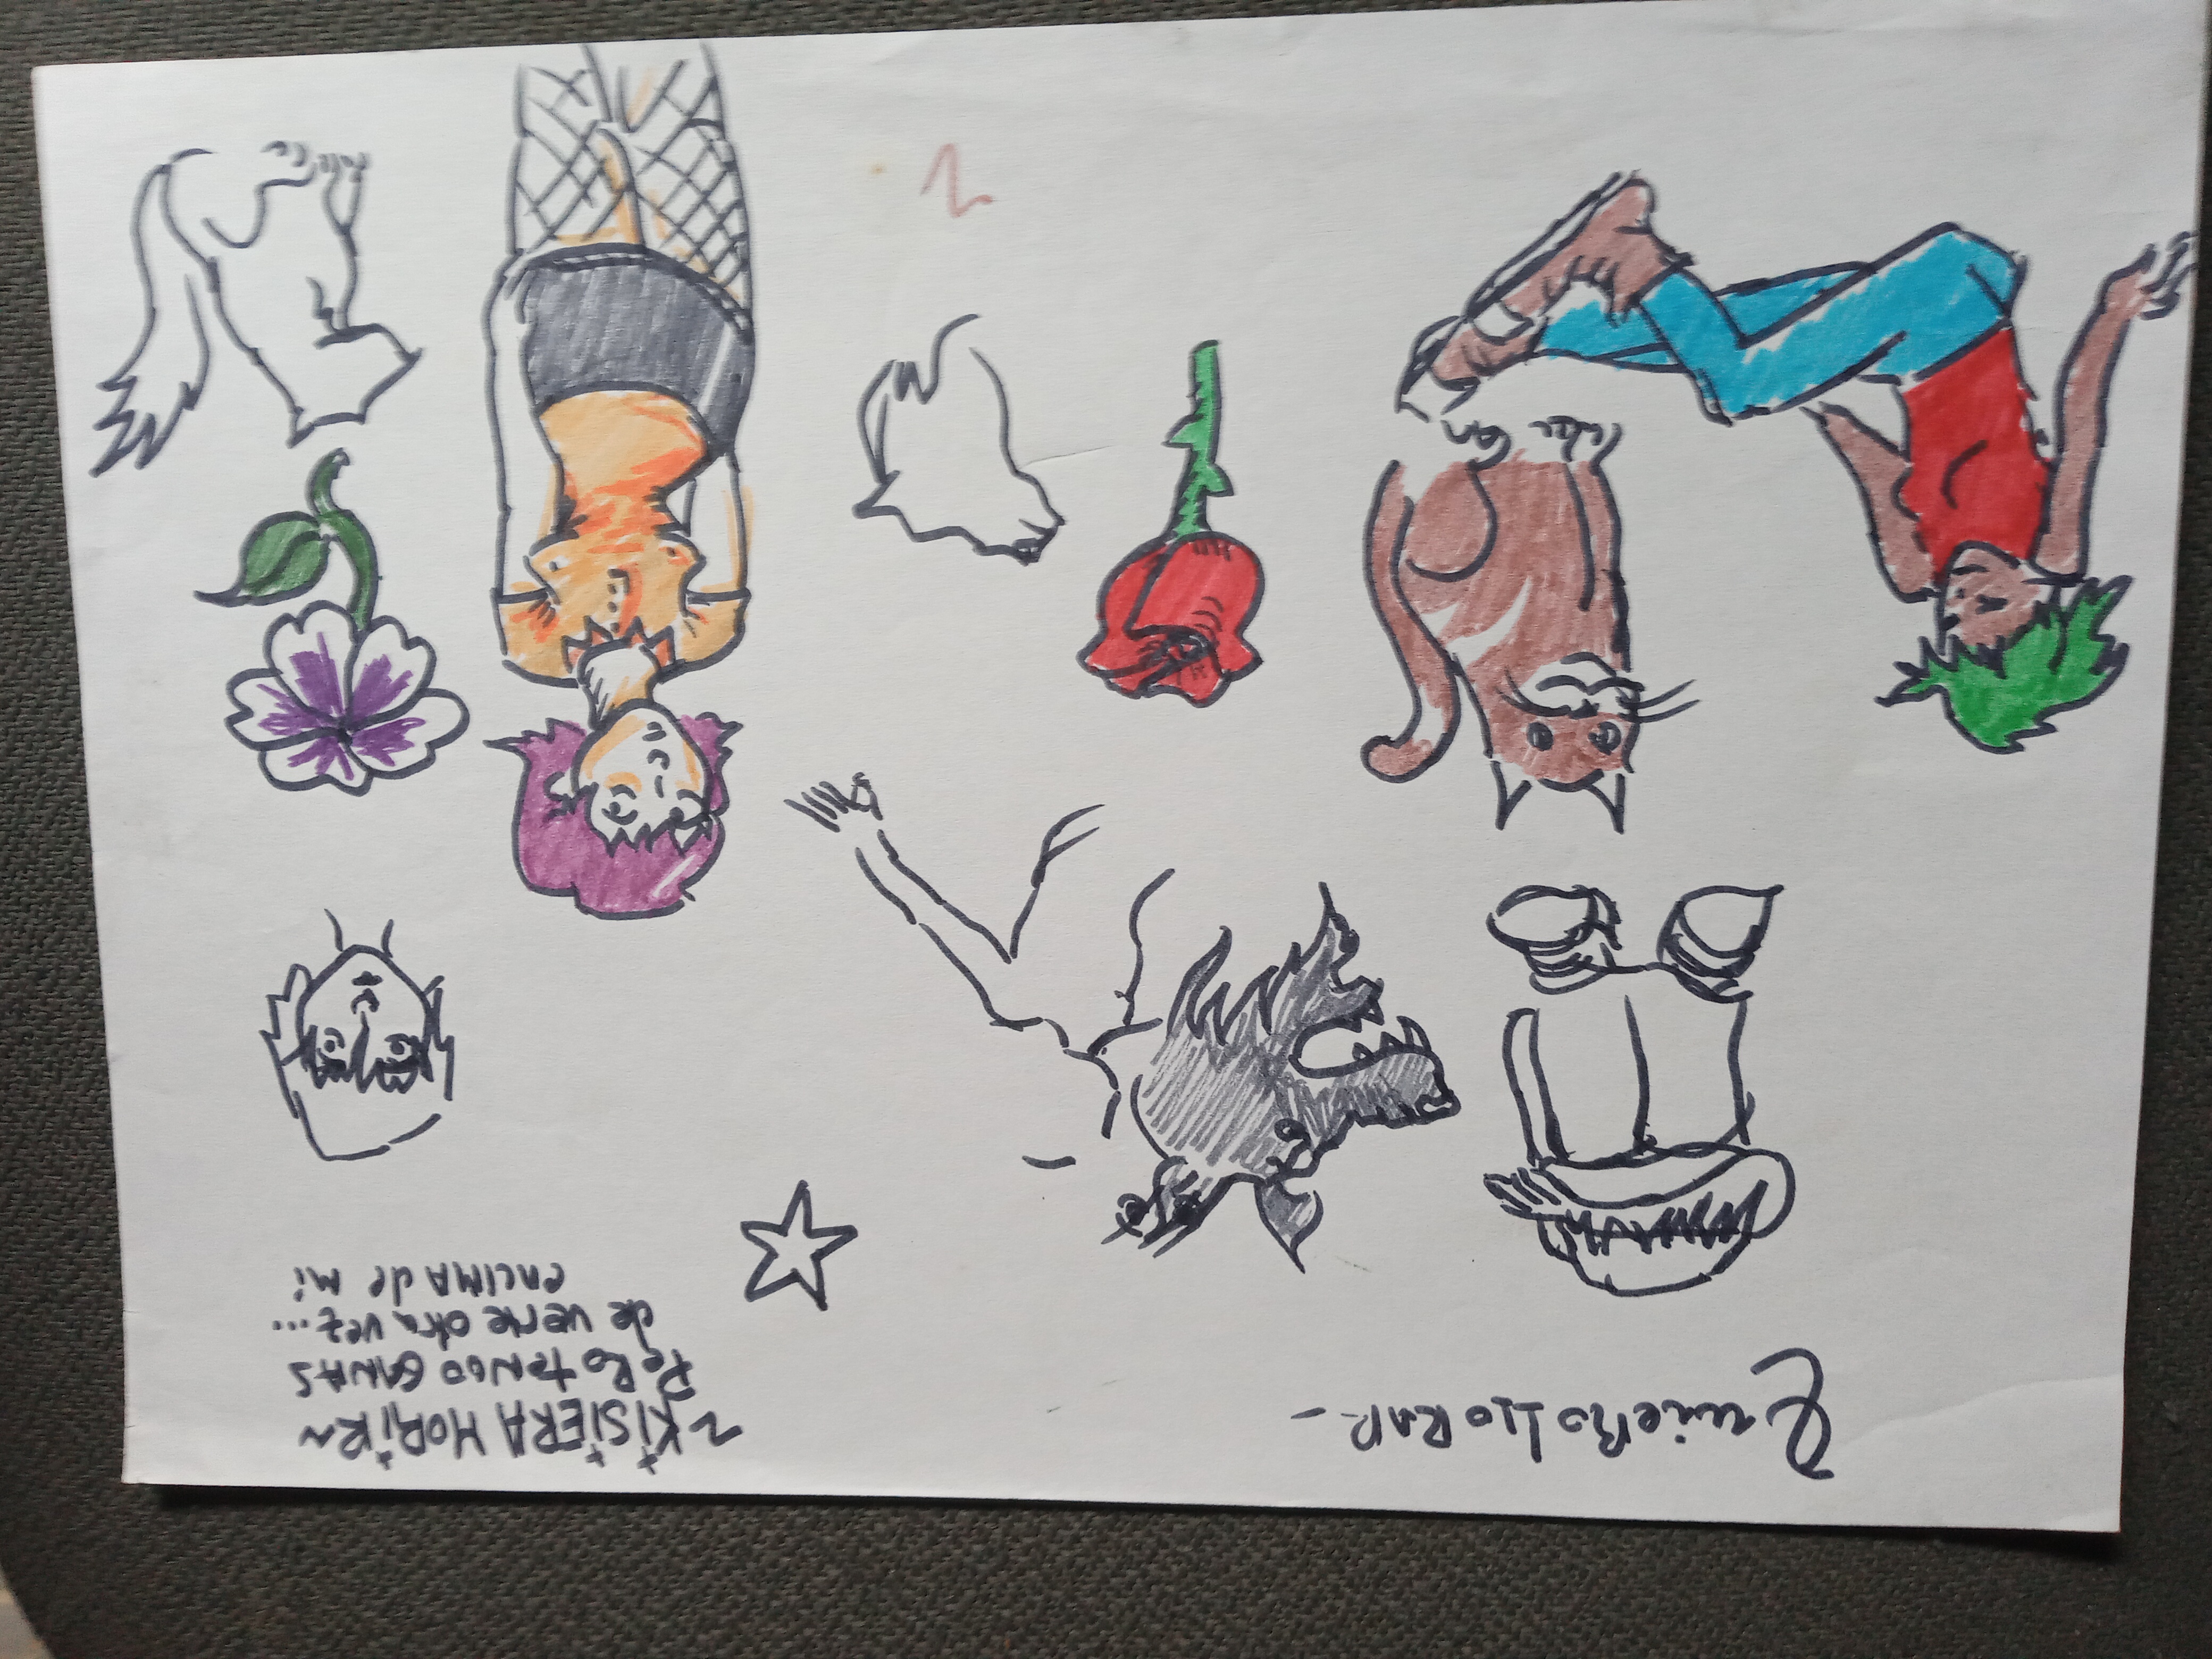 Quiero lloRAR_
~KiSiERA MORiR~
PeRo teNGO GANAS
de verte otra vez...
eNCIMA de Mi